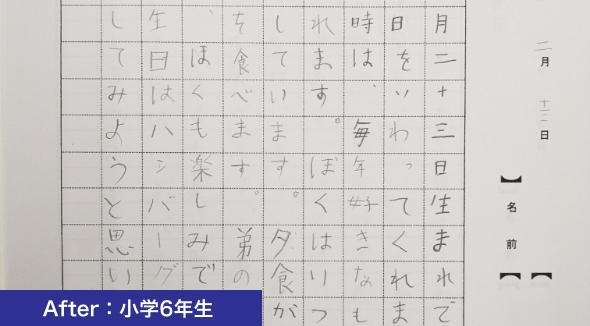 二月 日
【名前】【 】
月二十三日生まれで
日をいわってくれま
時は、毎年好きなも
れます。ぼくはりつ
しています。夕食が
を食べます。弟の
ほくも楽しみで
生日はハンバーグ
してみようと思い
After：小学6年生